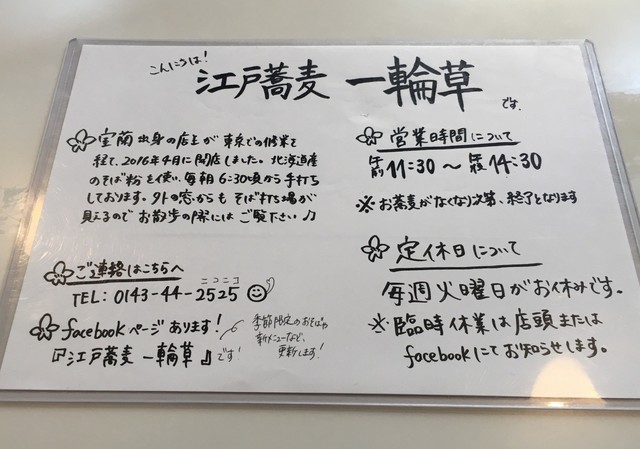 こんにちは!
江戸蕎麦 一輪草
です。
室蘭出身の店主が東京での修業を
経て、2016年4月に開店しました。北海道産
のそば粉を使い、毎朝6:30頃から手打ち
しております。外の窓からもそば打ち場が
見えるのでお散歩の際にはご覧下さい♪
ご連絡はこちらへ
ニコニコ
TEL: 0143-44-2525
facebookページあります!
『江戸蕎麦 一輪草』です!
季節限定のおそばや
新メニューなど、
更新します!
営業時間について
午前11:30〜午後14:30
※お蕎麦がなくなり次第、終了となります
定休日について
毎週火曜日がお休みです。
※臨時休業は店頭または
facebookにてお知らせします。